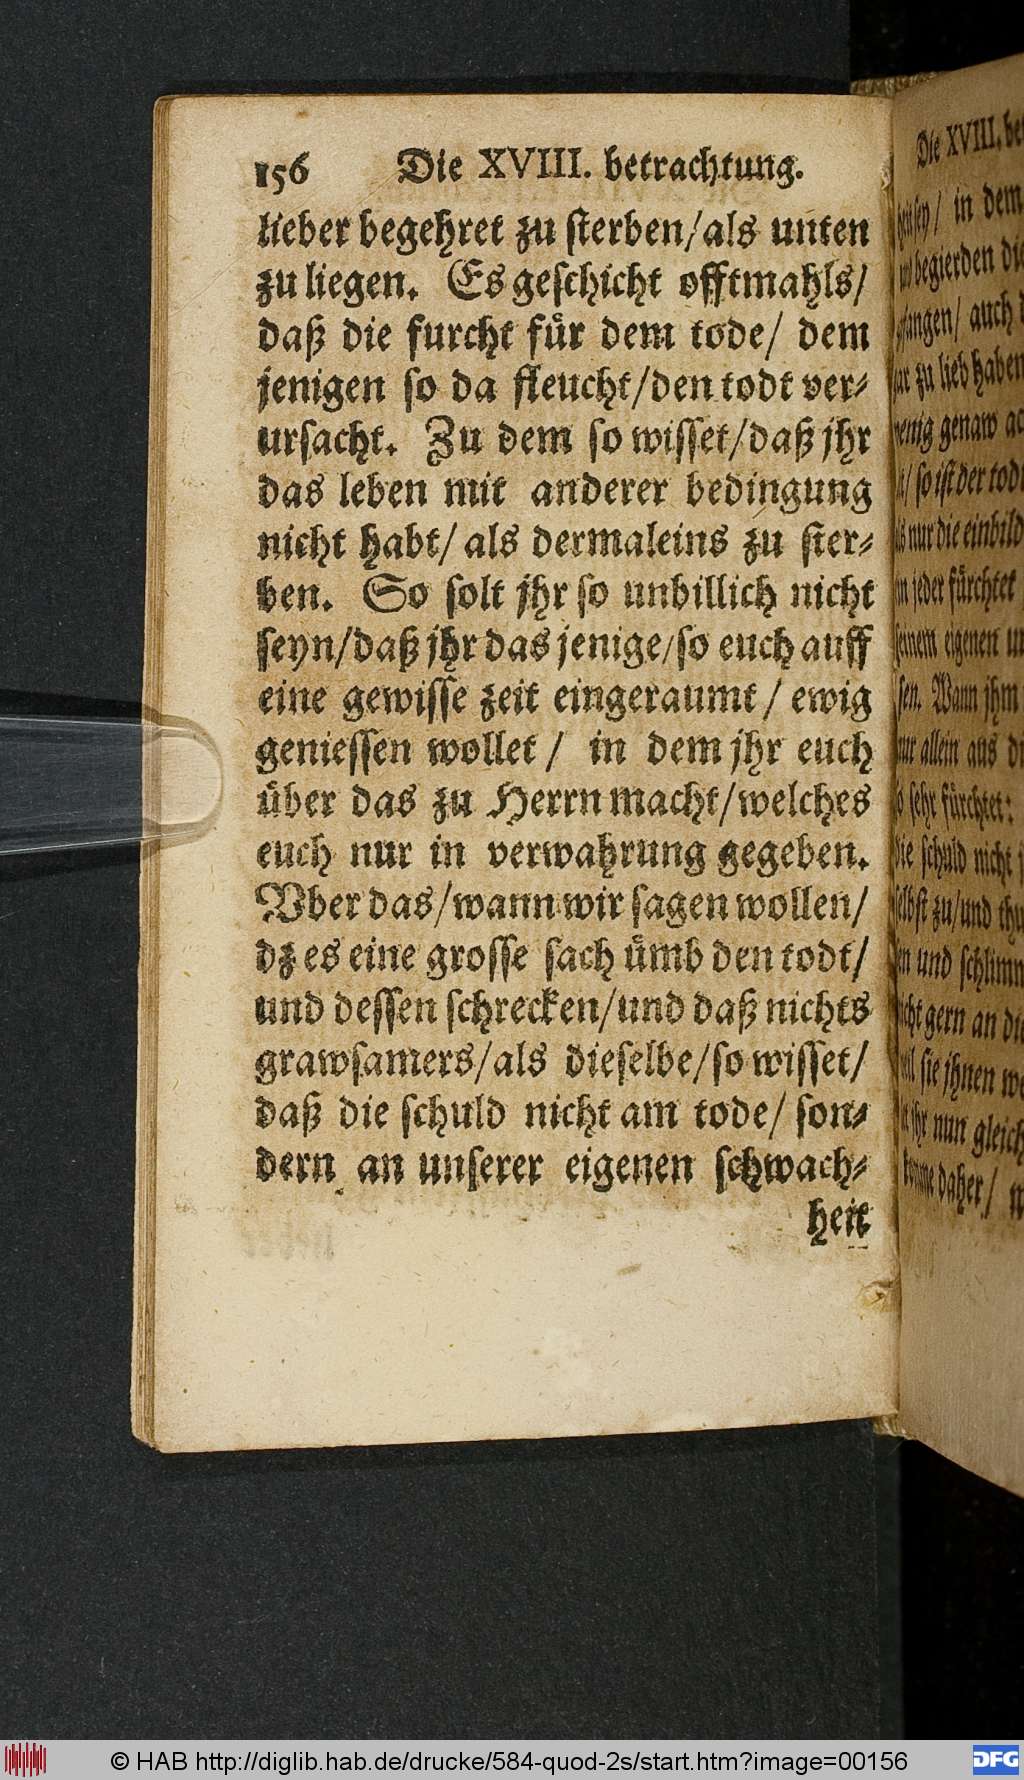 156 Die XVIII. betrachtung.
lieber begehret zu sterben/als unten
zu liegen. Es geschicht offtmahls/
daß die furcht für dem tode/ dem
jenigen so da fleucht/den todt ver-
ursacht. Zu dem so wisset/daß jhr
das leben mit anderer bedingung
nicht habt/ als dermaleins zu ster-
ben. So solt jhr so unbillich nicht
seyn/daß jhr das jenige/so euch auff
eine gewisse zeit eingeraumt/ ewig
geniessen wollet/ in dem jhr euch
über das zu Herrn macht/welches
euch nur in verwahrung gegeben.
Vber das/wann wir sagen wollen/
dz es eine grosse sach ümb den todt/
und dessen schrecken/und daß nichts
grawsamers/als dieselbe/so wisset/
daß die schuld nicht am tode/ son-
dern an unserer eigenen schwach-
heit
Die XVIII.
/ in dem
begierden
/ auch
zu lieb haben
genaw
/ so ist der
nur die
jeder fürchtet
eigenen
Wann jhm
allein aus
sehr fürchtet:
schuld nicht
zu/und
und
gern an
sie jhnen
jhr nun gleich
daher/
© HAB http://diglib.hab.de/drucke/584-quod-2s/start.htm?image=00156
DFG